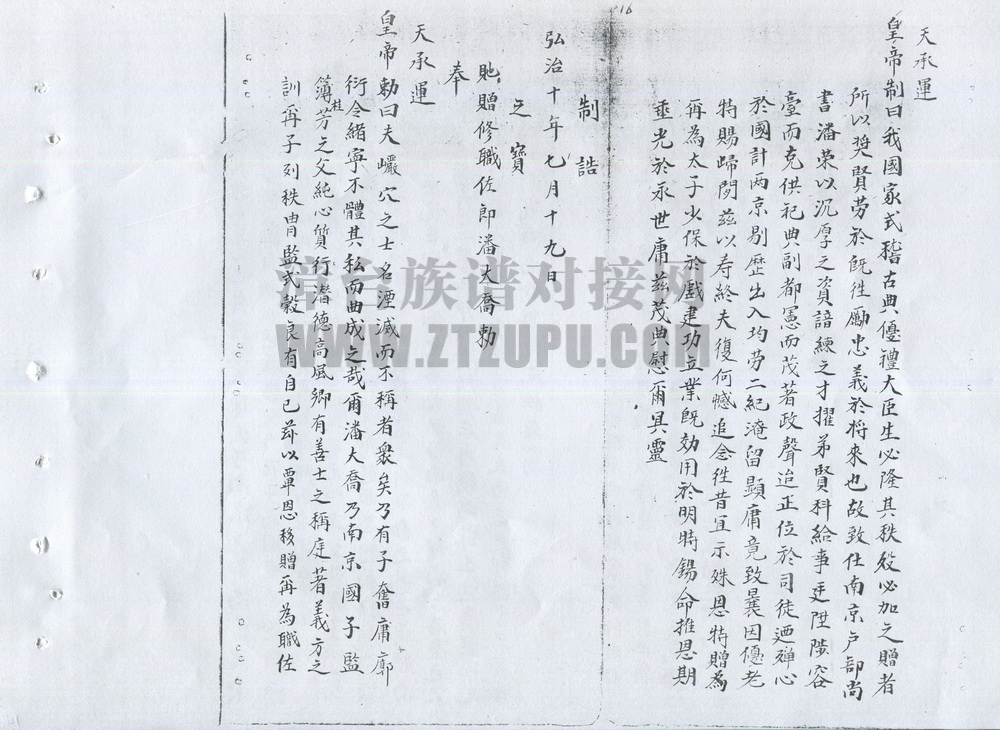 16
天承運
皇帝制曰我國家式稽古典優禮大臣生必隆其秩殁必加之贈者
所以奬賢勞於既徃勵忠義於将來也故致仕南京户部尚
書潘荣以沉厚之資諳練之才擢弟賢科給事廷陞陟容
臺而克供祀典副都憲而茂著政聲迨正位於司徒廼殫心
於國計两京剔歴出入均劳二紀淹留顯庸竟致㬥因優老
特賜歸閑兹以寿終夫復何憾追念徃昔宜示殊恩特贈為
再為太子少保於戲建功立業既効用於明時錫命推恩期
垂光於永世庸兹茂典慰爾冥靈
制誥
弘治十年七月十九日
之寳
貤贈修職佐郎潘大喬勅
奉
天承運
皇帝勅曰夫巗穴之士名湮滅而不稱者衆矣乃有子奮庸廓
衍令緒寧不體其私而曲成之哉爾潘大喬乃南京國子監
簿桂芳之父純心質行潜德高風鄉有善士之稱庭著義方之
訓再子列秩胄監式穀良有自已茲以覃恩移贈再為職佐
淄台族谱对接网
WWW.ZTZUPU.COM